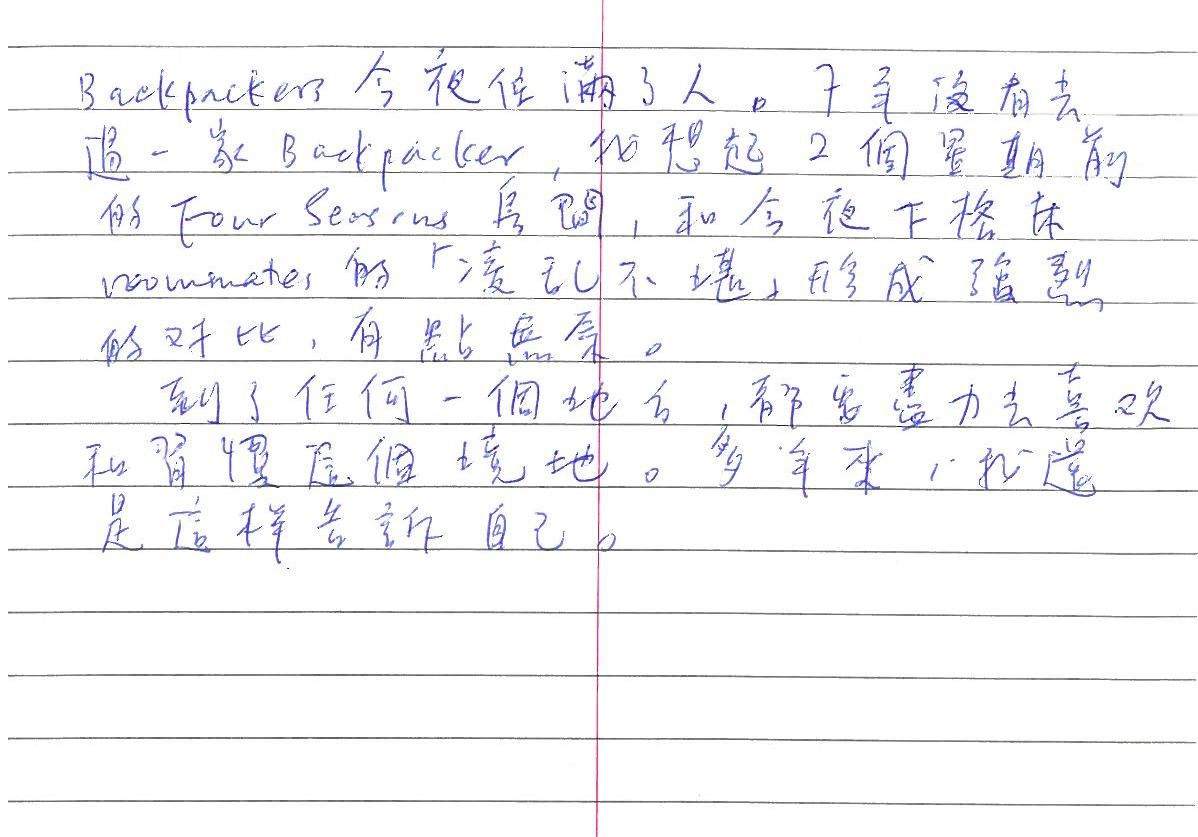 Backpackers 今夜住滿了人。7年沒有去
過一家 Backpacker, 我想起2個星期前
的 Four Seasons 房間, 和今夜下格床
roommates 的「凌乱不堪」形成強烈
的对比, 有點無奈。
到了任何一個地方, 都要盡力去喜欢
和習慣這個境地。多年來, 我還
是這样告訴自己。